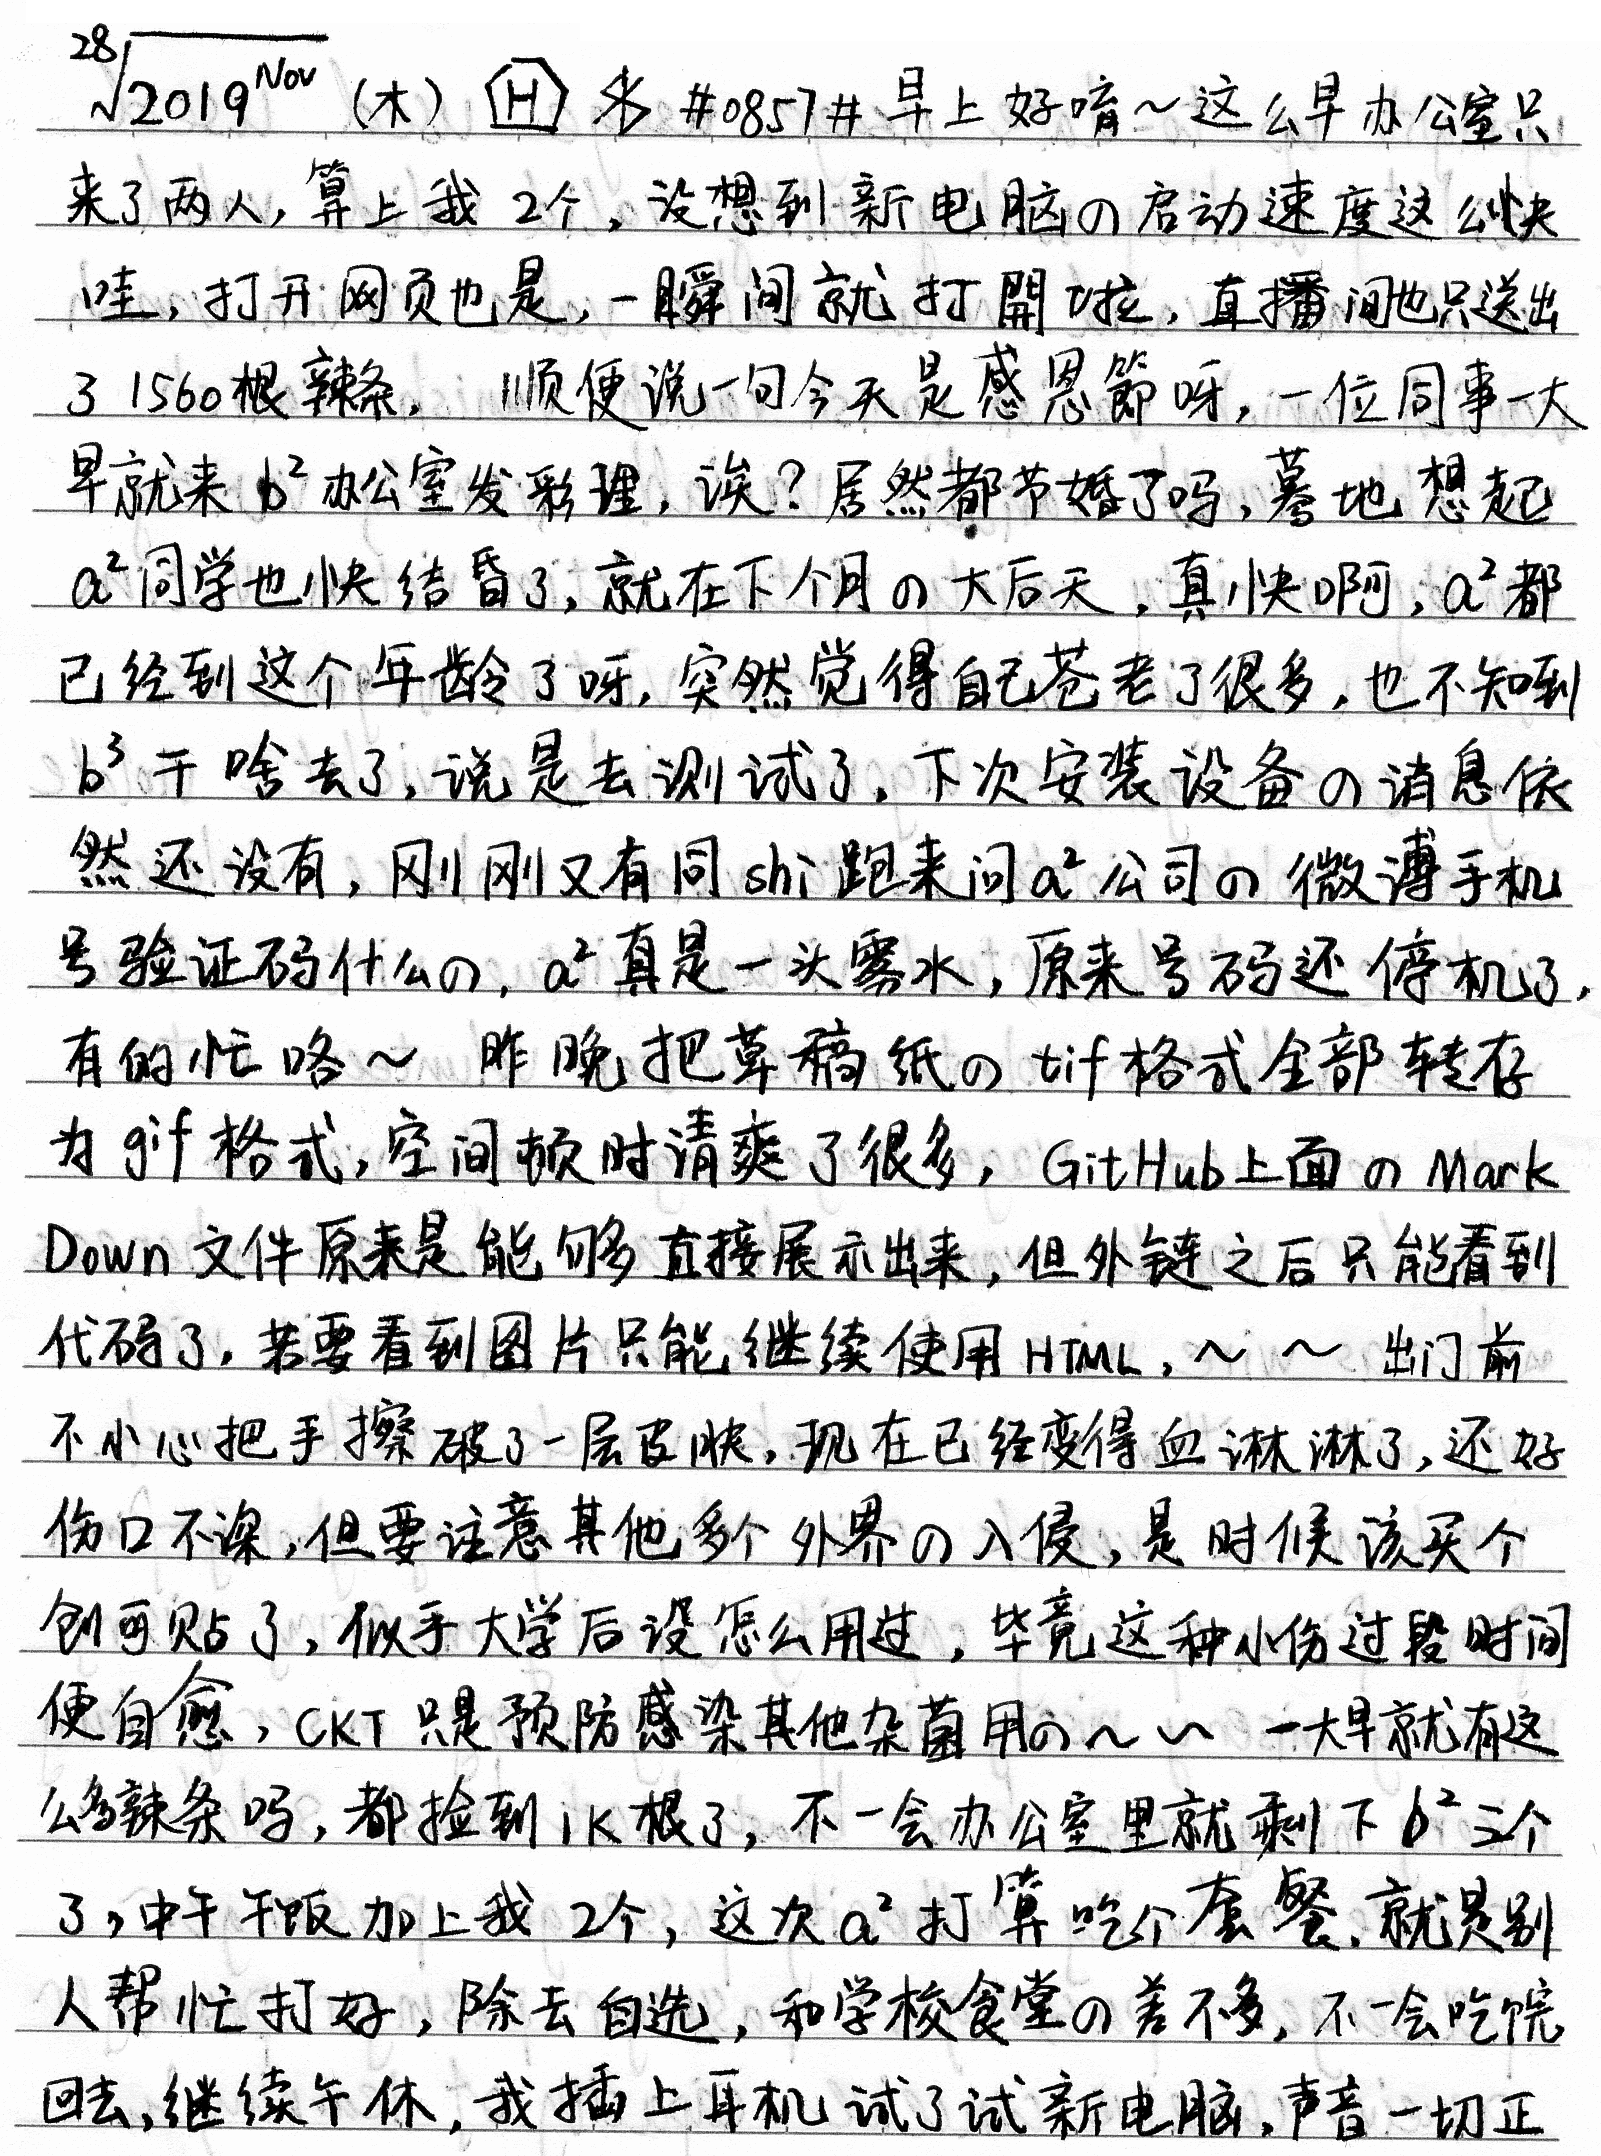 28√2019^Nov (木) H #0857# 早上好唷～这么早办公室只
来了两人,算上我2个,没想到新电脑の启动速度这么快
哇,打开网页也是,一瞬间就打開啦,直播间也只送出
了1560根辣条. 顺便说一句今天是感恩節呀,一位同事一大
早就来b²办公室发彩理,诶?居然都节婚了吗,蓦地想起
a²同学也快结昏了,就在下个月の大后天,真快啊,a²都
已经到这个年龄了呀,突然觉得自己苍老了很多,也不知到
b³干啥去了,说是去测试了,下次安装设备の消息依
然还没有,刚刚又有同shi跑来问a²公司の微溥手机
号验证码什么の,a²真是一头雾水,原来号码还停机了,
有的忙咯～ 昨晚把草稿纸の tif格式全部转存
为gif格式,空间顿时清爽了很多, GitHub上面の Mark
Down文件原来是能够直接展示出来,但外链之后只能看到
代码了,若要看到图片只能继续使用HTML,～～ 出门前
不小心把手擦破了一层皮肤,现在已经变得血淋淋了,还好
伤口不深,但要注意其他多个外界の入侵,是时候该买个
创可贴了,似乎大学后没怎么用过,毕竟这种小伤过段时间
便自愈,CKT只是预防感染其他杂菌用の～～ 一大早就有这
么多辣条吗,都捡到1K根了,不一会办公室里就剩下b²二个
了,中午干饭加上我2个,这次a²打算吃个套餐,就是别
人帮忙打好,除去自选,和学校食堂の差不多,不一会吃完
回去,继续午休,我插上耳机试了试新电脑,声音一切正